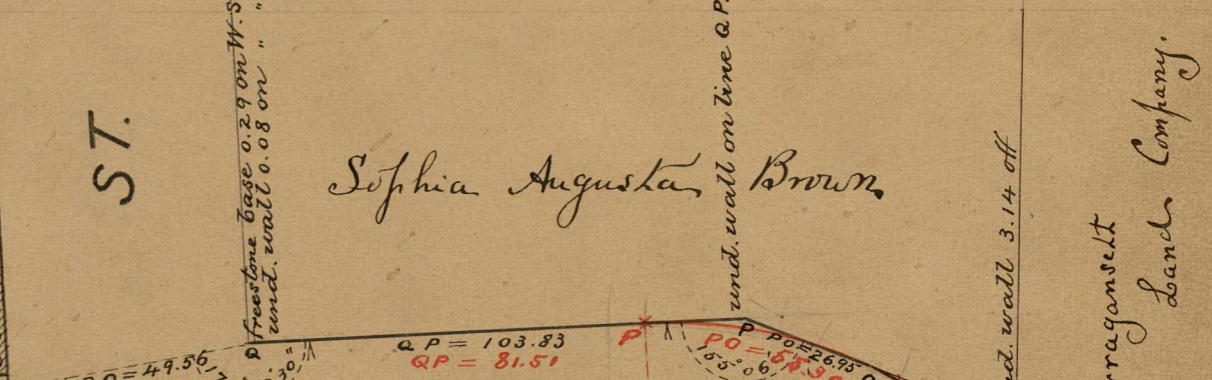 ST.
freestone base 0.29 on W.S
und. wall 0.08 on " "
Sophia Augusta Brown
und. wall on line QP.
wall 3.14 off
Land Company.
QP = 103.83
QP = 81.51
P
P
PO=26.95
PO=
155° 06'
=49.56
Q
30"